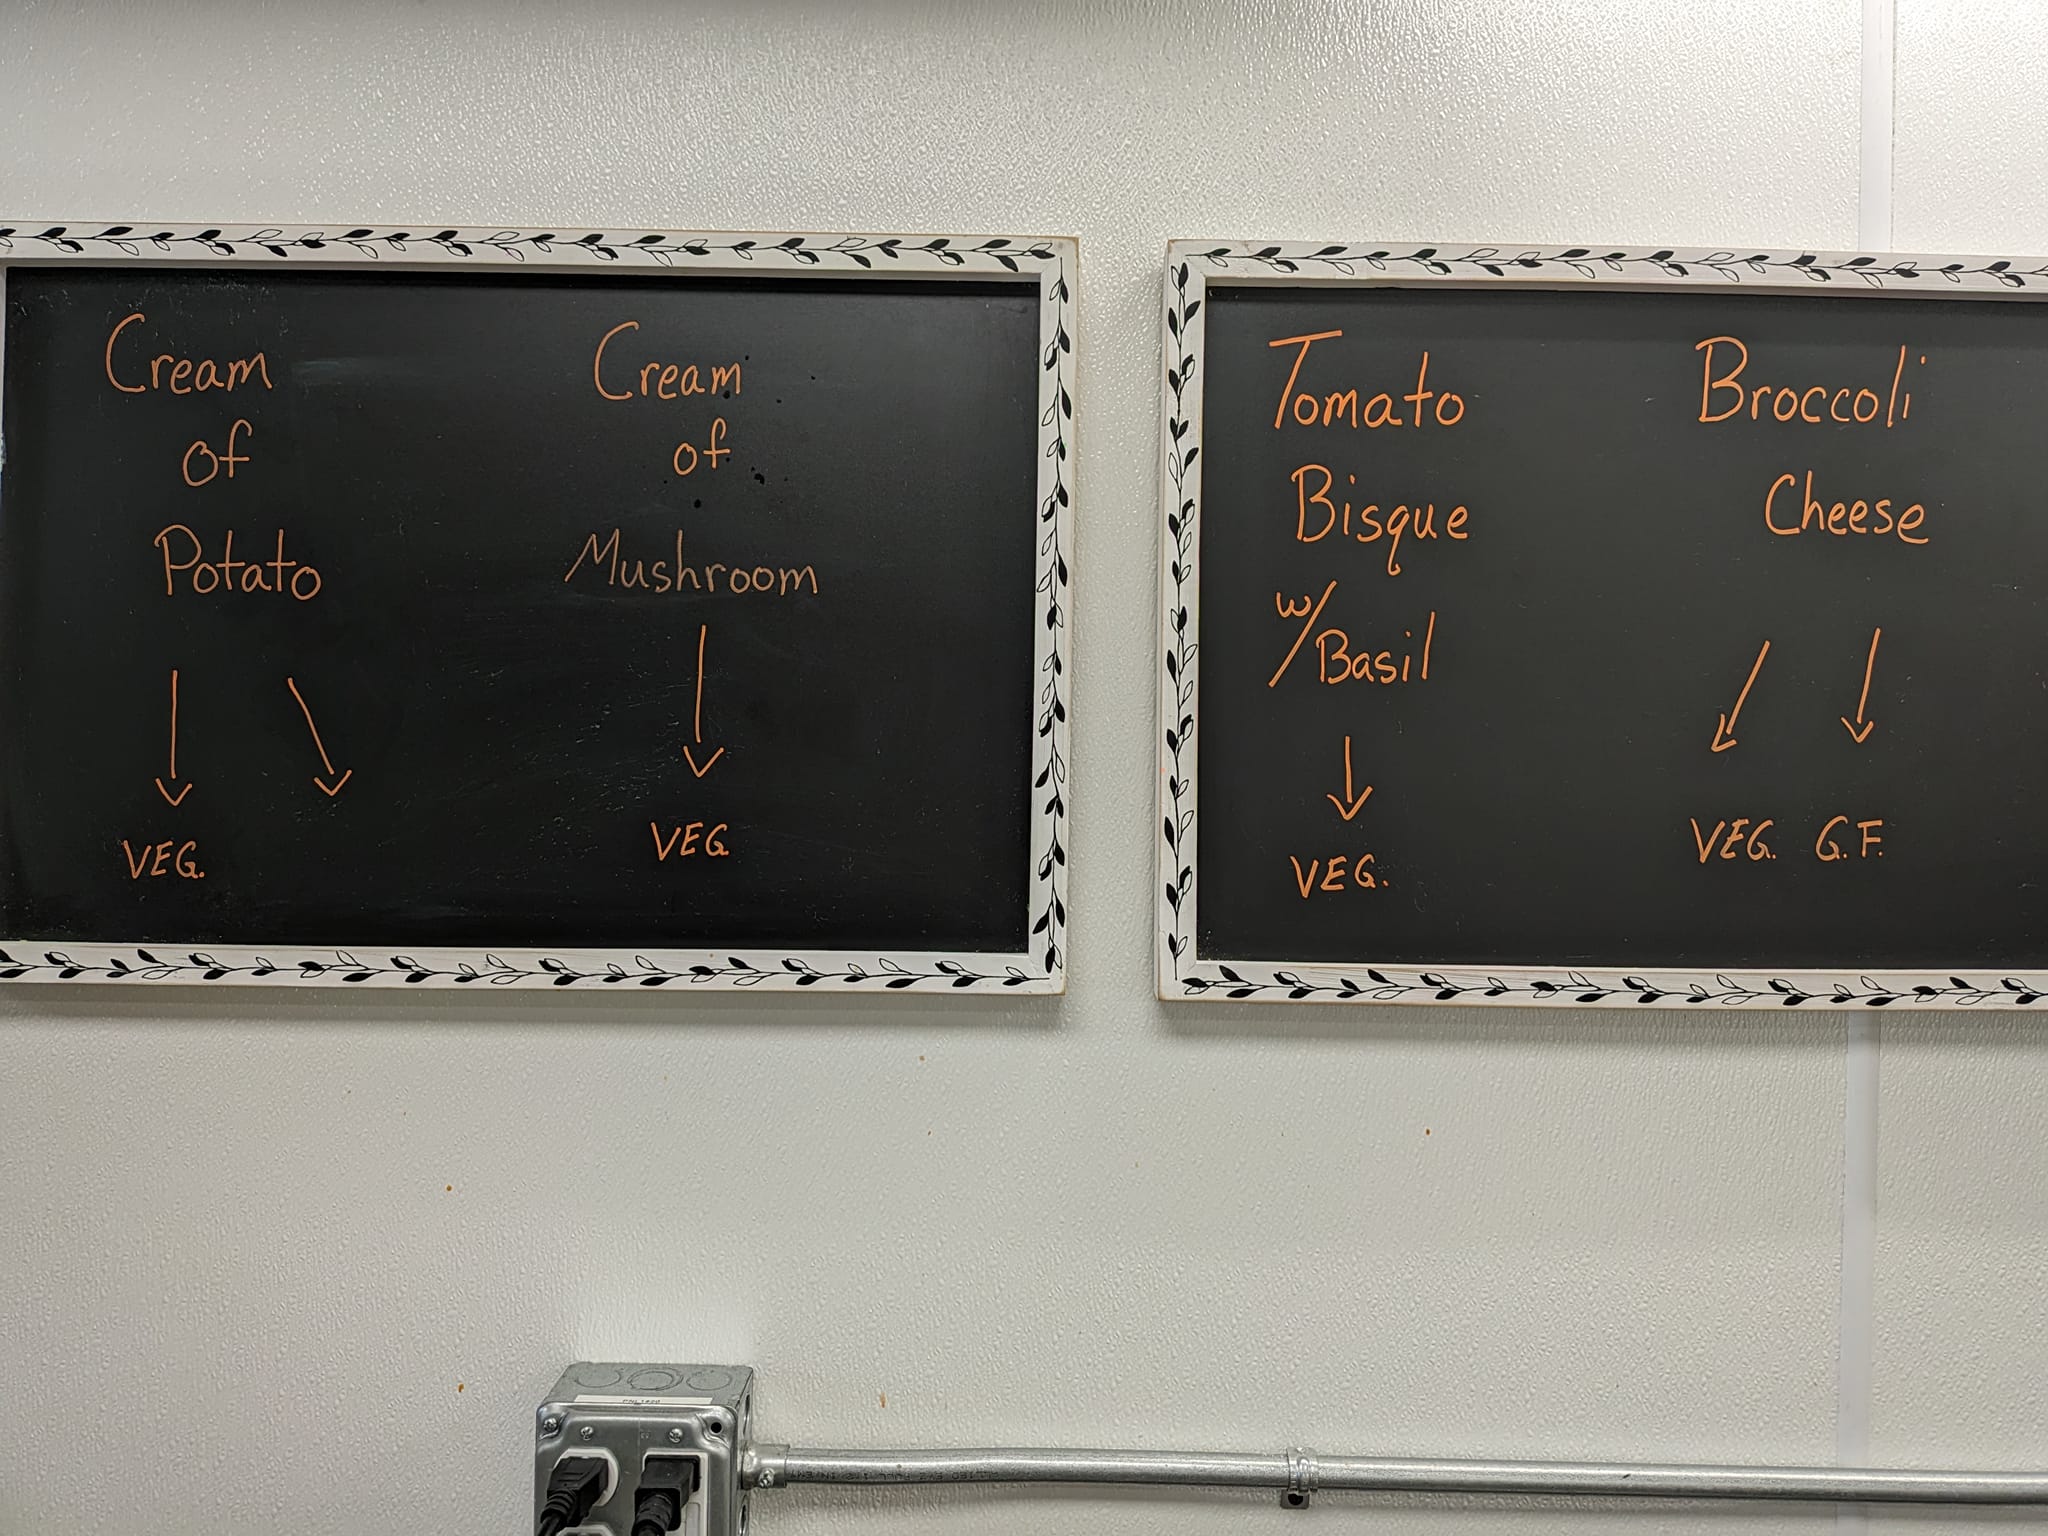 Cream
of
Potato
VEG.
Cream
of
Mushroom
VEG.
Tomato
Bisque
w/Basil
VEG.
Broccoli
Cheese
VEG. G.F.